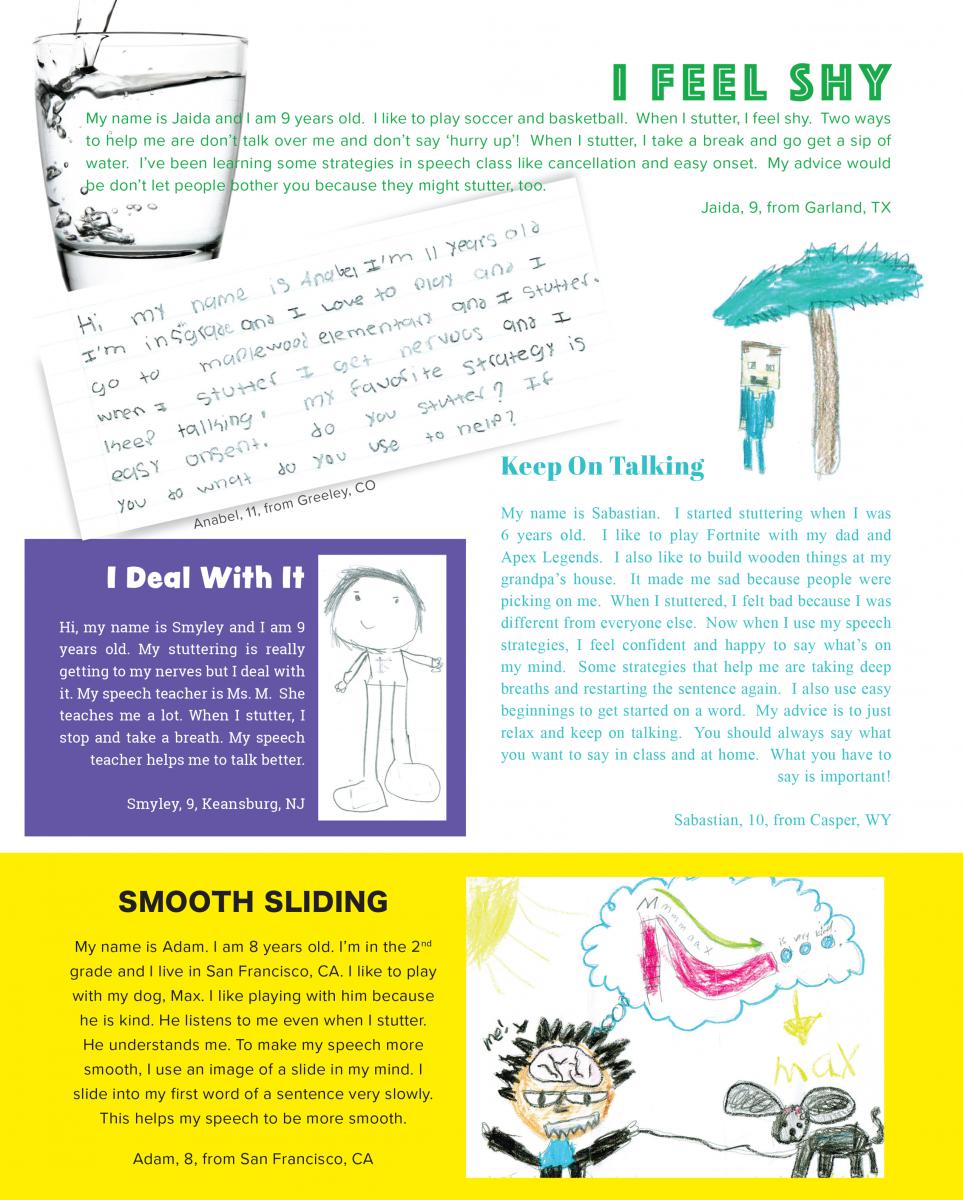 I FEEL SHY
My name is Jaida and I am 9 years old.  I like to play soccer and basketball.  When I stutter, I feel shy.  Two ways
to help me are don't talk over me and don't say 'hurry up'!  When I stutter, I take a break and go get a sip of
water.  I've been learning some strategies in speech class like cancellation and easy onset.  My advice would
be don't let people bother you because they might stutter, too.
Jaida, 9, from Garland, TX
Hi, my name is Anabel I'm 11 years old
I'm in 5th grade and I Love to play and I
go to maplewood elementary and I stutter.
when I stutter I get nervous and I
keep talking. my favorite strategy is
easy onsent. do you stutter? If
you do what do you use to help?
Anabel, 11, from Greeley, CO
Keep On Talking
My name is Sabastian.  I started stuttering when I was
6 years old.  I like to play Fortnite with my dad and
Apex Legends.  I also like to build wooden things at my
grandpa's house.  It made me sad because people were
picking on me.  When I stuttered, I felt bad because I was
different from everyone else.  Now when I use my speech
strategies, I feel confident and happy to say what's on
my mind.  Some strategies that help me are taking deep
breaths and restarting the sentence again.  I also use easy
beginnings to get started on a word.  My advice is to just
relax and keep on talking.  You should always say what
you want to say in class and at home.  What you have to
say is important!
Sabastian, 10, from Casper, WY
I Deal With It
Hi, my name is Smyley and I am 9
years old. My stuttering is really
getting to my nerves but I deal with
it. My speech teacher is Ms. M.  She
teaches me a lot. When I stutter, I
stop and take a breath. My speech
teacher helps me to talk better.
Smyley, 9, Keansburg, NJ
SMOOTH SLIDING
My name is Adam. I am 8 years old. I'm in the 2nd
grade and I live in San Francisco, CA. I like to play
with my dog, Max. I like playing with him because
he is kind. He listens to me even when I stutter.
He understands me. To make my speech more
smooth, I use an image of a slide in my mind. I
slide into my first word of a sentence very slowly.
This helps my speech to be more smooth.
Adam, 8, from San Francisco, CA
Mmmmaax
is very kind.
me!
max